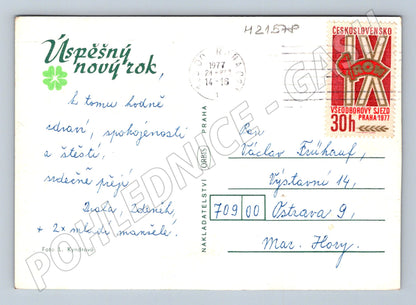 H2157P
Úspěšný
nový rok,
k tomu hodně
zdraví, spokojenosti
a štěstí,
srdečně přejí
Zdeněk,
+ 2x mladí manželé.
Foto L. Kyndrová
NAKLADATELSTVÍ ORBIS PRAHA
1977
14-16
ČESKOSLOVENSKO
IX
ROH
VŠEODBOROVÝ SJEZD
PRAHA 1977
30h
Pan
Václav Frühauf,
Výstavní 14,
709 00 Ostrava 9,
Mar. Hory.
POHLEDNICE - GASU